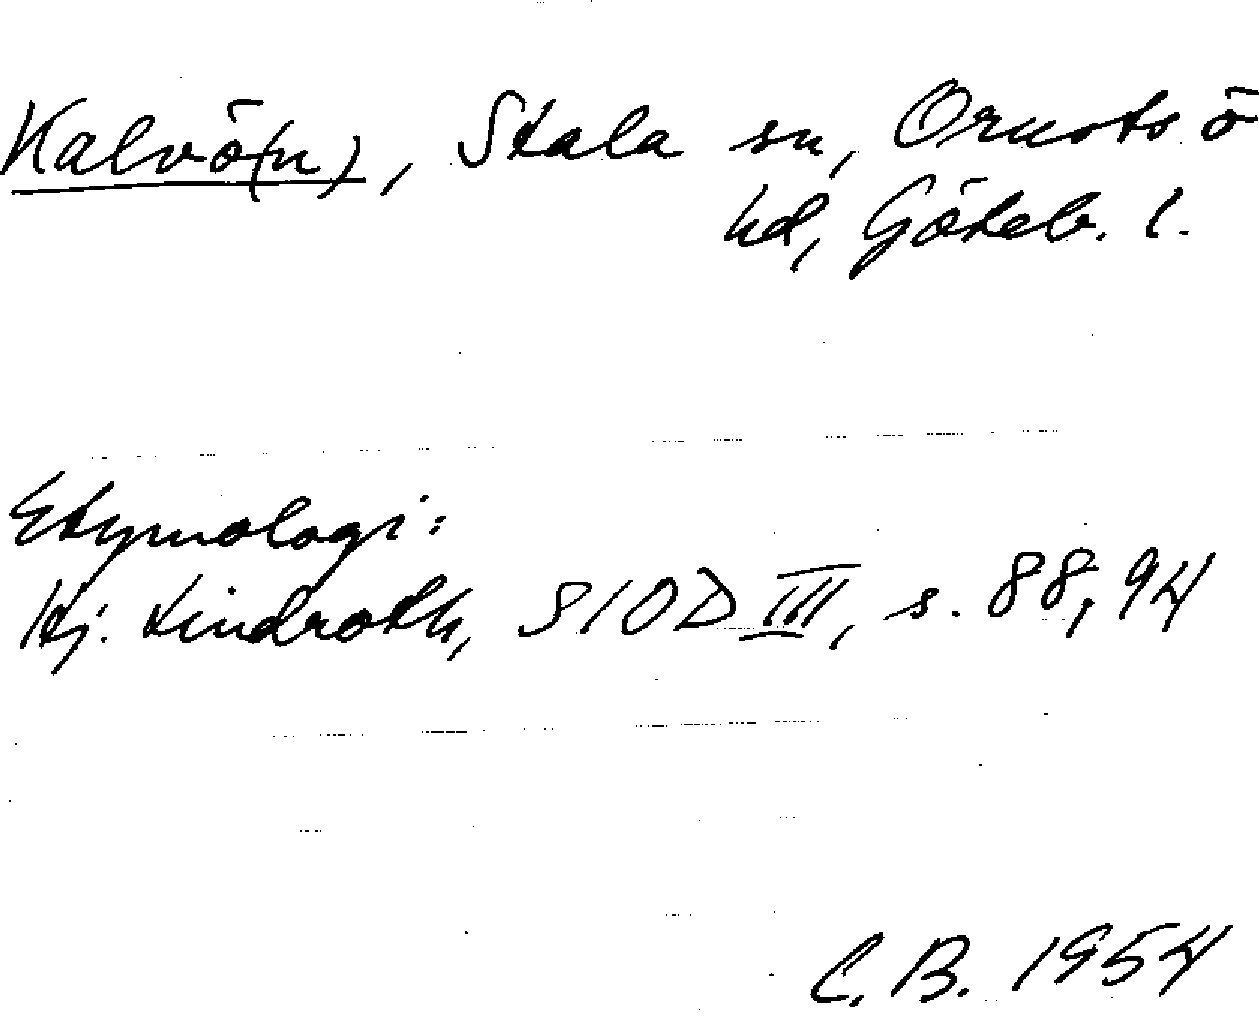 Kalvö(n), Stala sn, Orusts ö
hd, Göteb. l.
Etymologi:
Hj. Lindroth, SIOD III, s. 88, 94
C. B. 1954